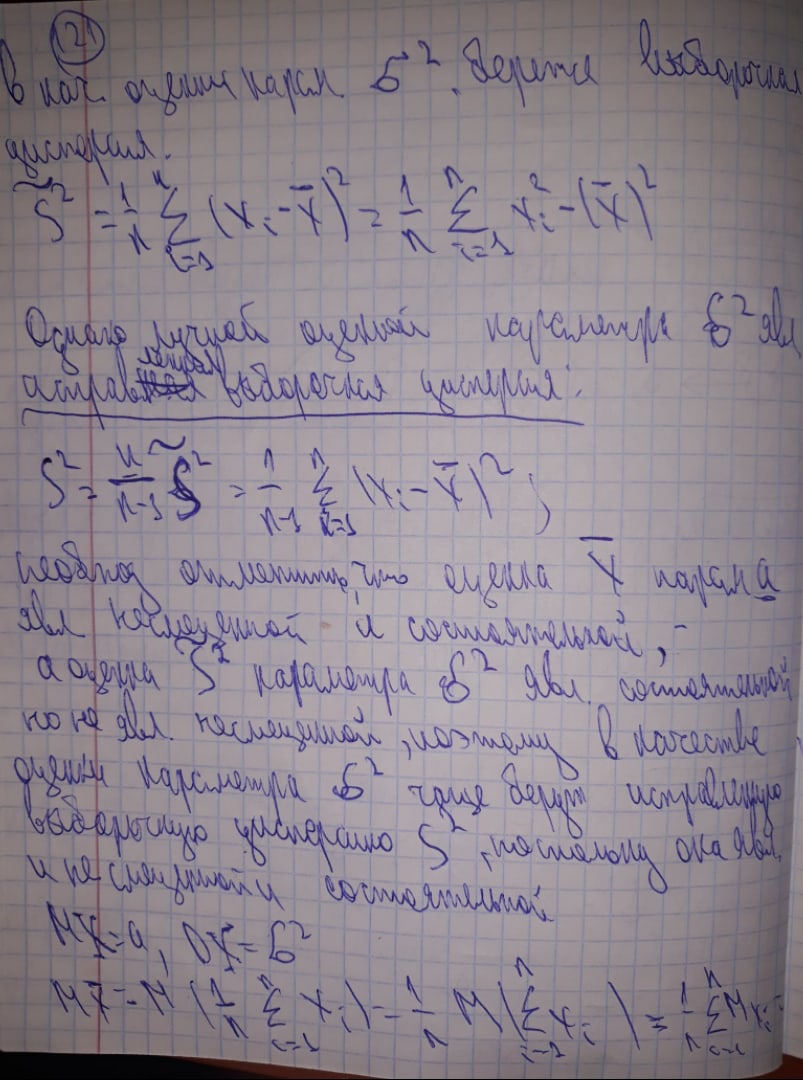 (2)
В кач. оценки парам. σ². берется выборочная
дисперсия.
S̃² = 1/n Σ_{i=1}^{n} (x_i - x̄)² = 1/n Σ_{i=1}^{n} x_i² - (x̄)²
Однако лучшей оценкой параметра σ² явл
исправленная выборочная дисперсия:
S² = n/(n-1) S̃² = 1/(n-1) Σ_{i=1}^{n} (x_i - x̄)²;
необход отметить, что оценка X̄ парам a
явл несмещенной и состоятельной,
а оценка S̃² параметра σ² явл. состоятельной
но не явл. несмещенной, поэтому в качестве
оценки параметра σ² чаще берут исправленную
выборочную дисперсию S², поскольку она явл.
и несмещенной и состоятельной
MX=a, DX=σ²
MX̄ = M(1/n Σ_{i=1}^{n} x_i) = 1/n M(Σ_{i=1}^{n} x_i) = 1/n Σ_{i=1}^{n} Mx_i =